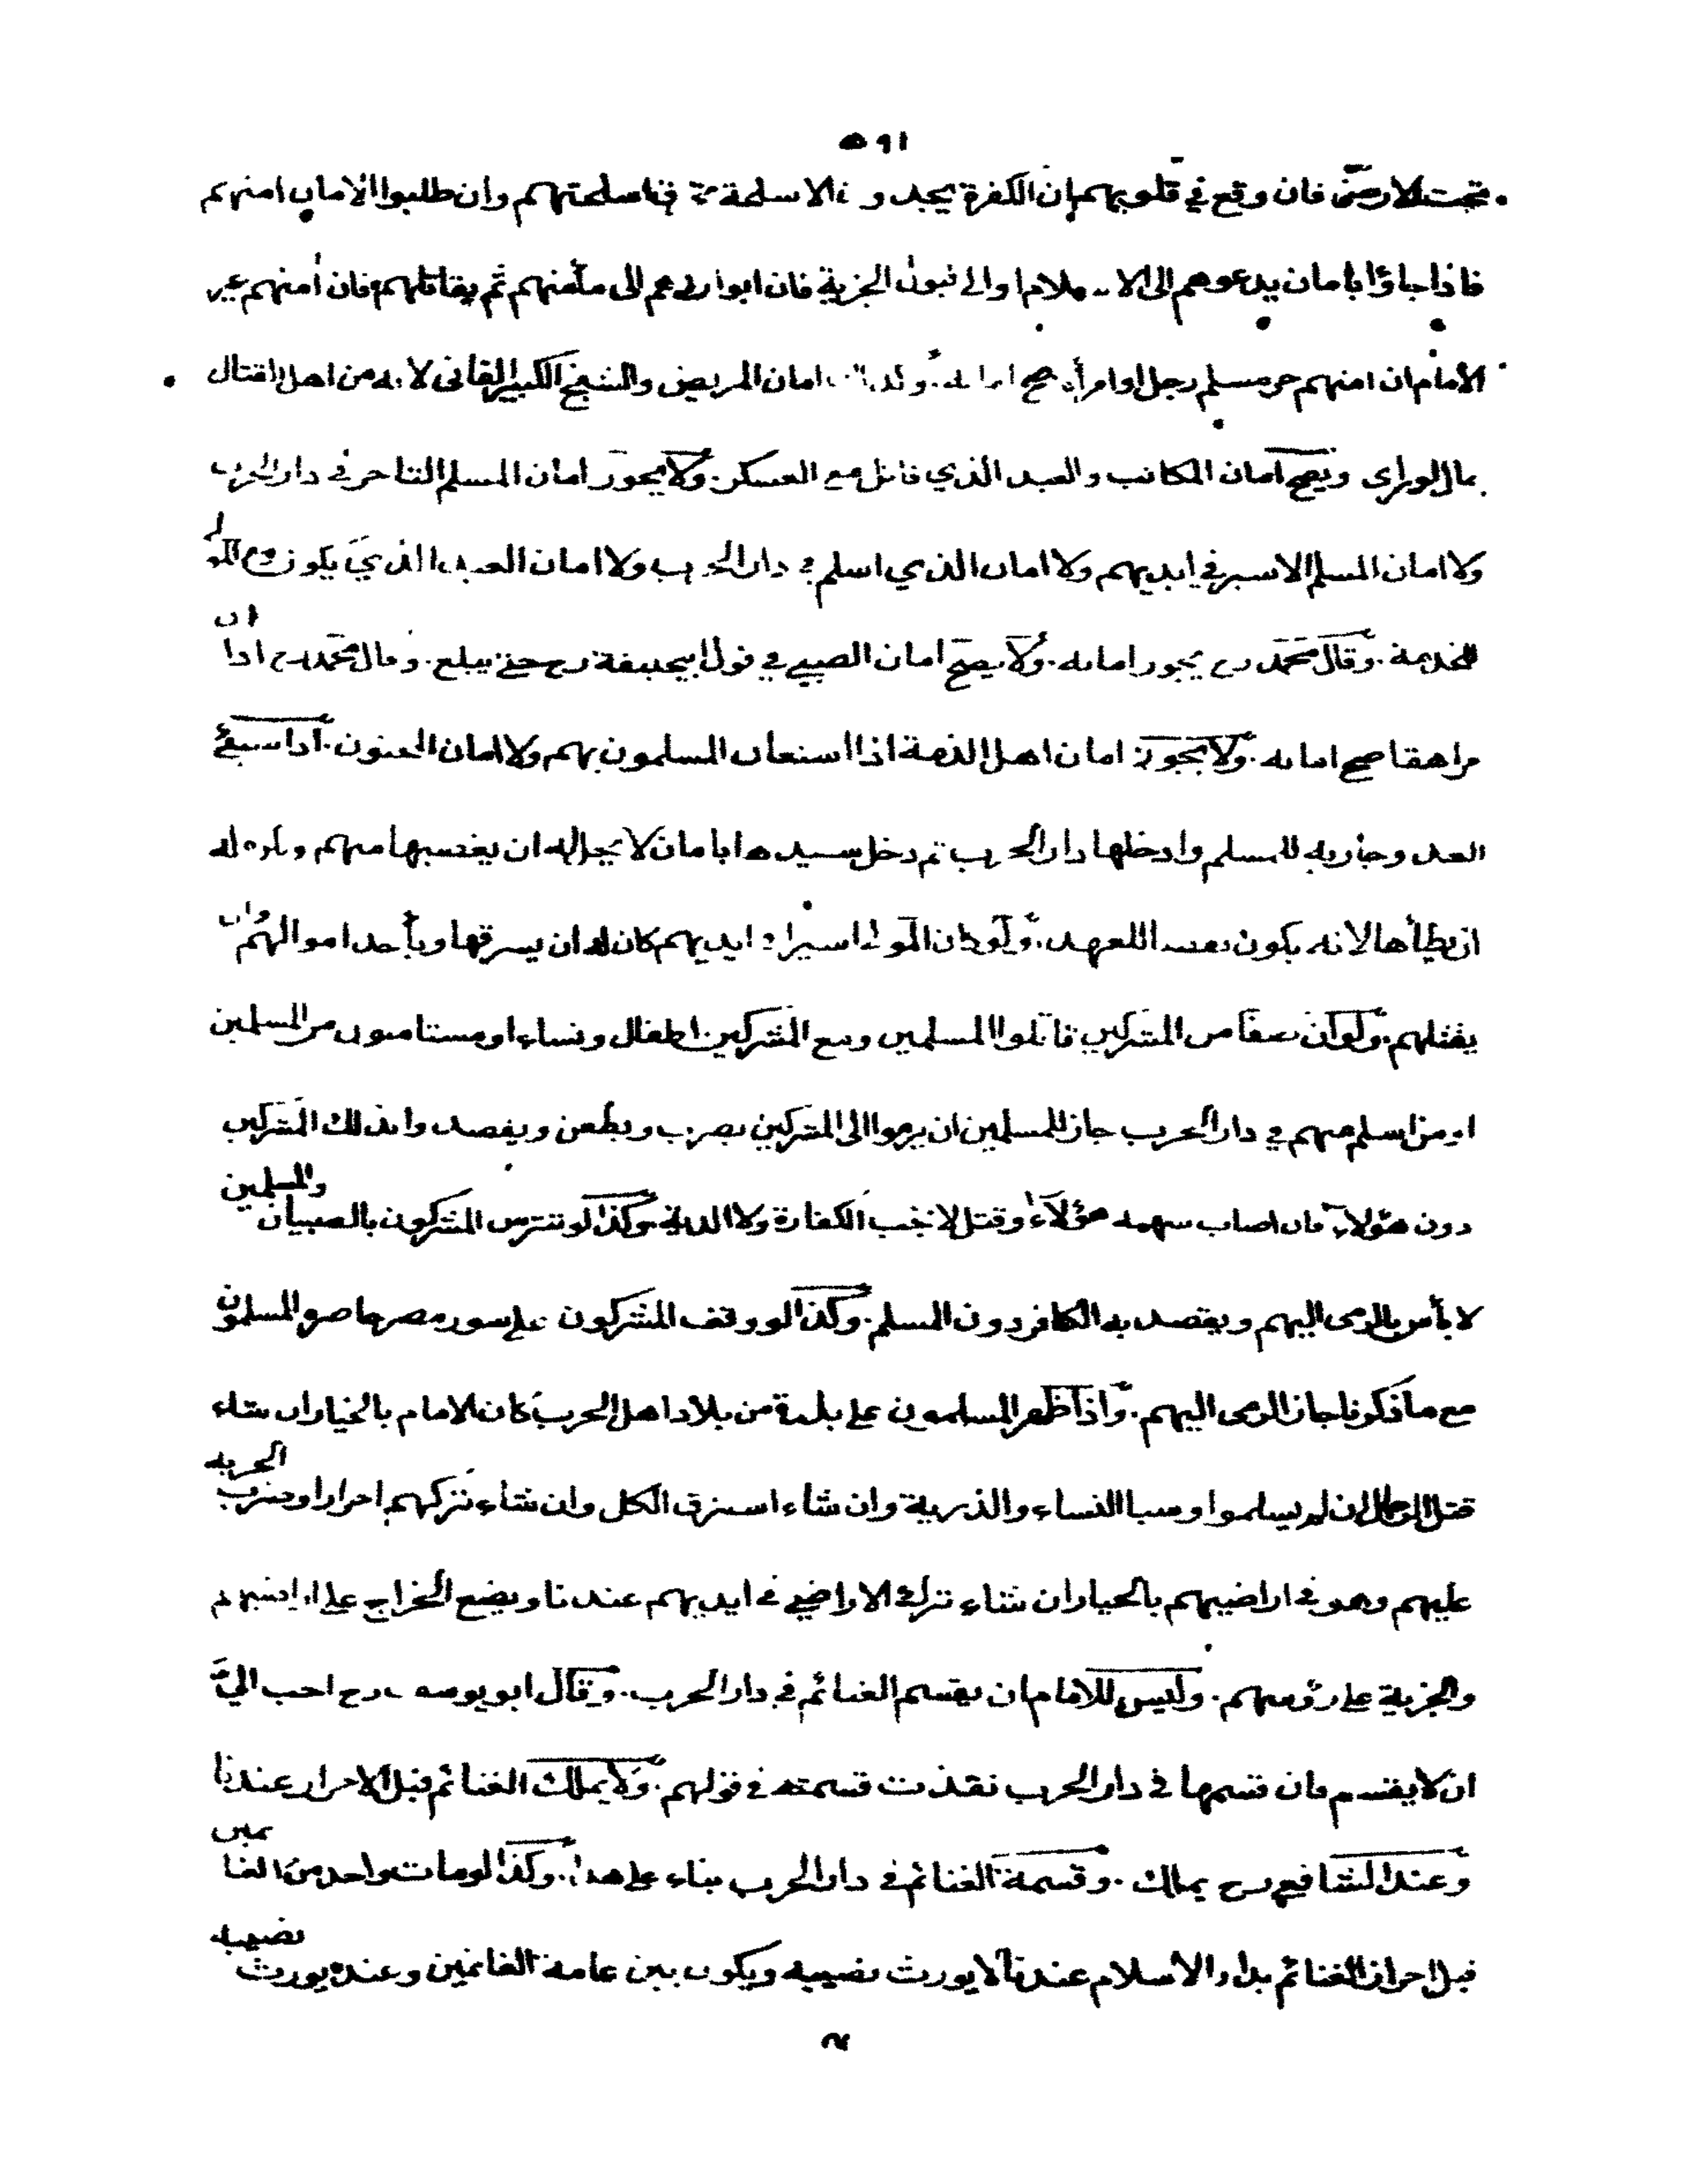 ٥٩١
تحت الارض فان وقع في قلوبهم ان الكفرة يجدون الاسلحة ثمة فاسلحتهم وان طلبوا الامان امنهم
فاذا جاؤا بامان يدعوهم الى الاسلام او الى قبول الجزية فان ابوا ردهم الى مأمنهم ثم يقاتلهم فان أمنهم غير
الامام ان امنهم حر مسلم رجل او امرأة صح امانه. وكذلك امان المريض والشيخ الكبير الفاني لانه من اهل القتال
بمال او رأى ويصح امان المكاتب والعبد الذي قاتل مع العسكر. ولا يجوز امان المسلم التاجر في دار الحرب
ولا امان المسلم الاسير في ايديهم ولا امان الذي اسلم في دار الحرب ولا امان العبد الذي يكون مع المولى
للخدمة. وقال محمد رح يجوز امانه. ولا يصح امان الصبي في قول ابيحنيفة رح حتى يبلغ. وقال محمد رح اذا ان
مراهقا صح امانه. ولا يجوز امان اهل الذمة اذا استعان المسلمون بهم ولا امان المجنون. اذا سبي
العدو جارية للمسلم وادخلها دار الحرب ثم دخل سيدها بامان لا يحل له ان يغصبها منهم ويكره له
ان يطأها لانه يكون نقضا للعهد. ولو كان المولى اسيرا في ايديهم كان له ان يسرقها ويأخذ اموالهم وان
يقتلهم. ولو ان صفا من المشركين قاتلوا المسلمين ومع المشركين اطفال ونساء او مستامنون من المسلمين
او من اسلم منهم في دار الحرب جاز للمسلمين ان يرموا الى المشركين بضرب ويطعن ويقصد وا بذلك المشركين
دون هؤلاء فان اصاب سهمه هؤلاء وقتل لا تجب الكفارة ولا الدية وكذا لو تترس المشركون بالصبيان والمسلمين
لا بأس بالرمى اليهم ويقصد به الكافر دون المسلم. وكذا لو وقف المشركون على سور مصر حاصره المسلمون
مع ما ذكرنا جاز الرمى اليهم. واذا ظهر المسلمون على بلدة من بلاد اهل الحرب كان للامام بالخيار ان شاء
قتل الرجال ان لم يسلموا وسبا النساء والذرية وان شاء استرق الكل وان شاء تركهم احرارا وضرب الجزية
عليهم وهو في اراضيهم بالخيار ان شاء ترك الاراضي في ايديهم عندنا ويضع الخراج على اراضيهم
والجزية على رؤسهم. وليس للامام ان يقسم الغنائم في دار الحرب. وقال ابو يوسف رح احب اليّ
ان لا يقسم فان قسمها في دار الحرب نفذت قسمته في قولهم. ولا يملك الغنائم قبل الاحراز عندنا
وعند الشافعي رح يملك. وقسمة الغنائم في دار الحرب بناء على هذا. وكذا لو مات واحد من الغانمين
قبل احراز الغنائم بدار الاسلام عندنا لا يورث نصيبه ويكون بين عامة الغانمين وعنده يورث نصيبه